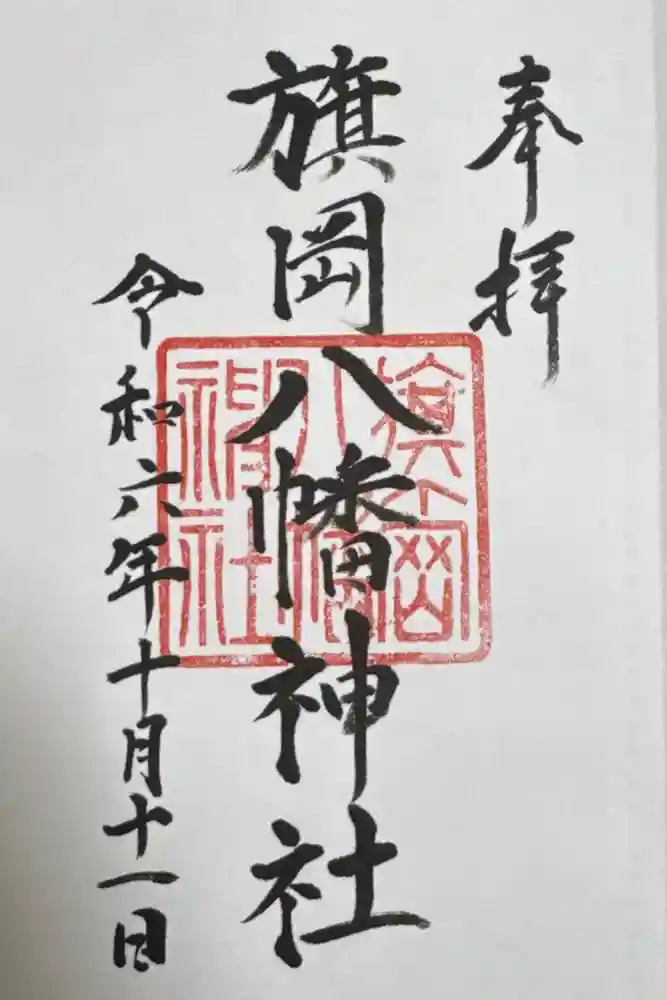 奉拝
旗岡八幡神社
旗岡
八幡
神社
令和六年十月十一日